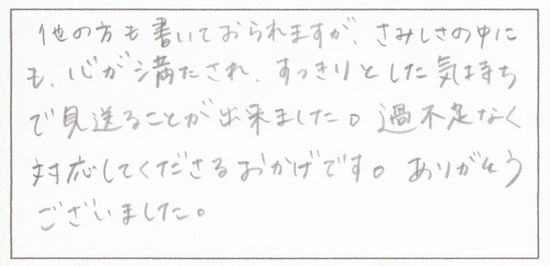 他の方も書いておられますが、さみしさの中に
も、心が満たされ、すっきりとした気持ち
で見送ることが出来ました。過不足なく
対応してくださるおかげです。ありがとう
ございました。